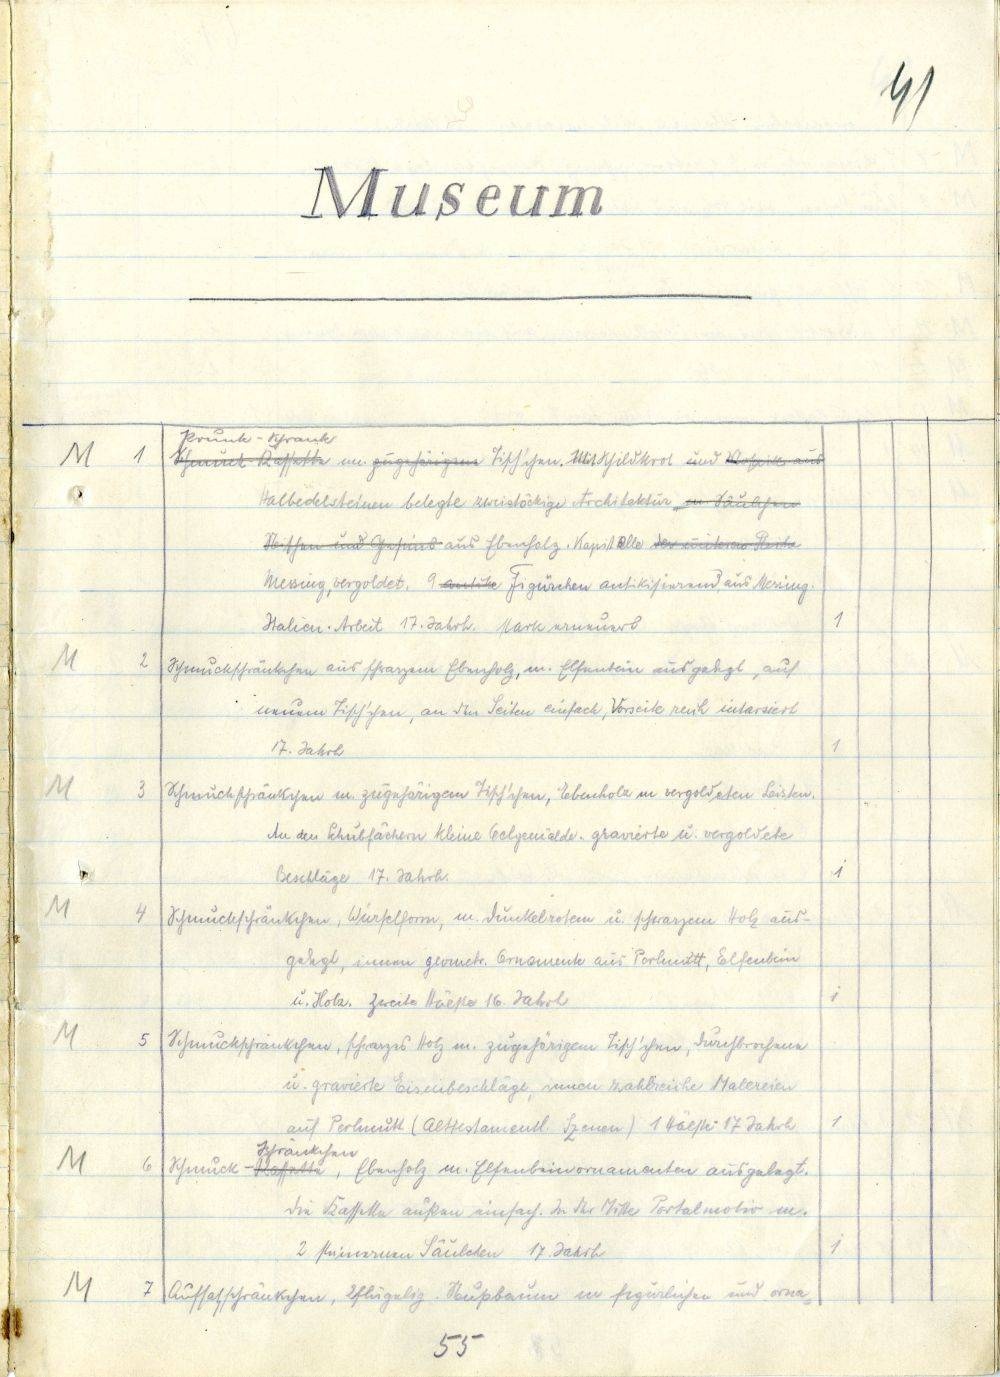 41
Museum
Prunk-Schrank
M 1 Schmuck-Kassette m. zugehörigem Tisch'chen. Mit Schildkrot und Mosaik aus
Halbedelsteinen belegte zweistöckige Architektur, m Säulchen
Nischen und Gesims aus Ebenholz. Kapitelle der unteren Reihe
Messing, vergoldet. 9 antike Figürchen antikisierend, aus Messing.
Italien. Arbeit 17. Jahrh. stark erneuert 1
M 2 Schmuckschränkchen aus schwarzem Ebenholz, m. Elfenbein ausgelegt, auf
neuem Tisch'chen, an den Seiten einfach, Vorseite reich intarsiert
17. Jahrh 1
M 3 Schmuckschränkchen m. zugehörigem Tisch'chen, Ebenholz m vergoldeten Leisten.
An den Schubfächern kleine Oelgemälde. gravierte u. vergoldete
Beschläge 17. Jahrh. 1
M 4 Schmuckschränkchen, Würfelform, m. dunkelrotem u. schwarzem Holz aus-
gelegt, innen geometr. Ornamente aus Perlmutt, Elfenbein
u. Holz. Zweite Hälfte 16. Jahrh 1
M 5 Schmuckschränkchen, schwarzes Holz m. zugehörigem Tisch'chen, durchbrochene
u. gravierte Eisenbeschläge, innen zahlreiche Malereien
auf Perlmutt (Alttestamentl. Szenen) 1 Hälfte 17 Jahrh 1
Schränkchen
M 6 Schmuck-Kassette, Ebenholz m. Elfenbeinornamenten ausgelegt.
Die Kassette außen einfach. In der Mitte Portalmotiv m.
2 steinernen Säulchen 17. Jahrh 1
M 7 Aufsatzschränkchen, 2flügelig. Nußbaum m figürlichen und orna-
55